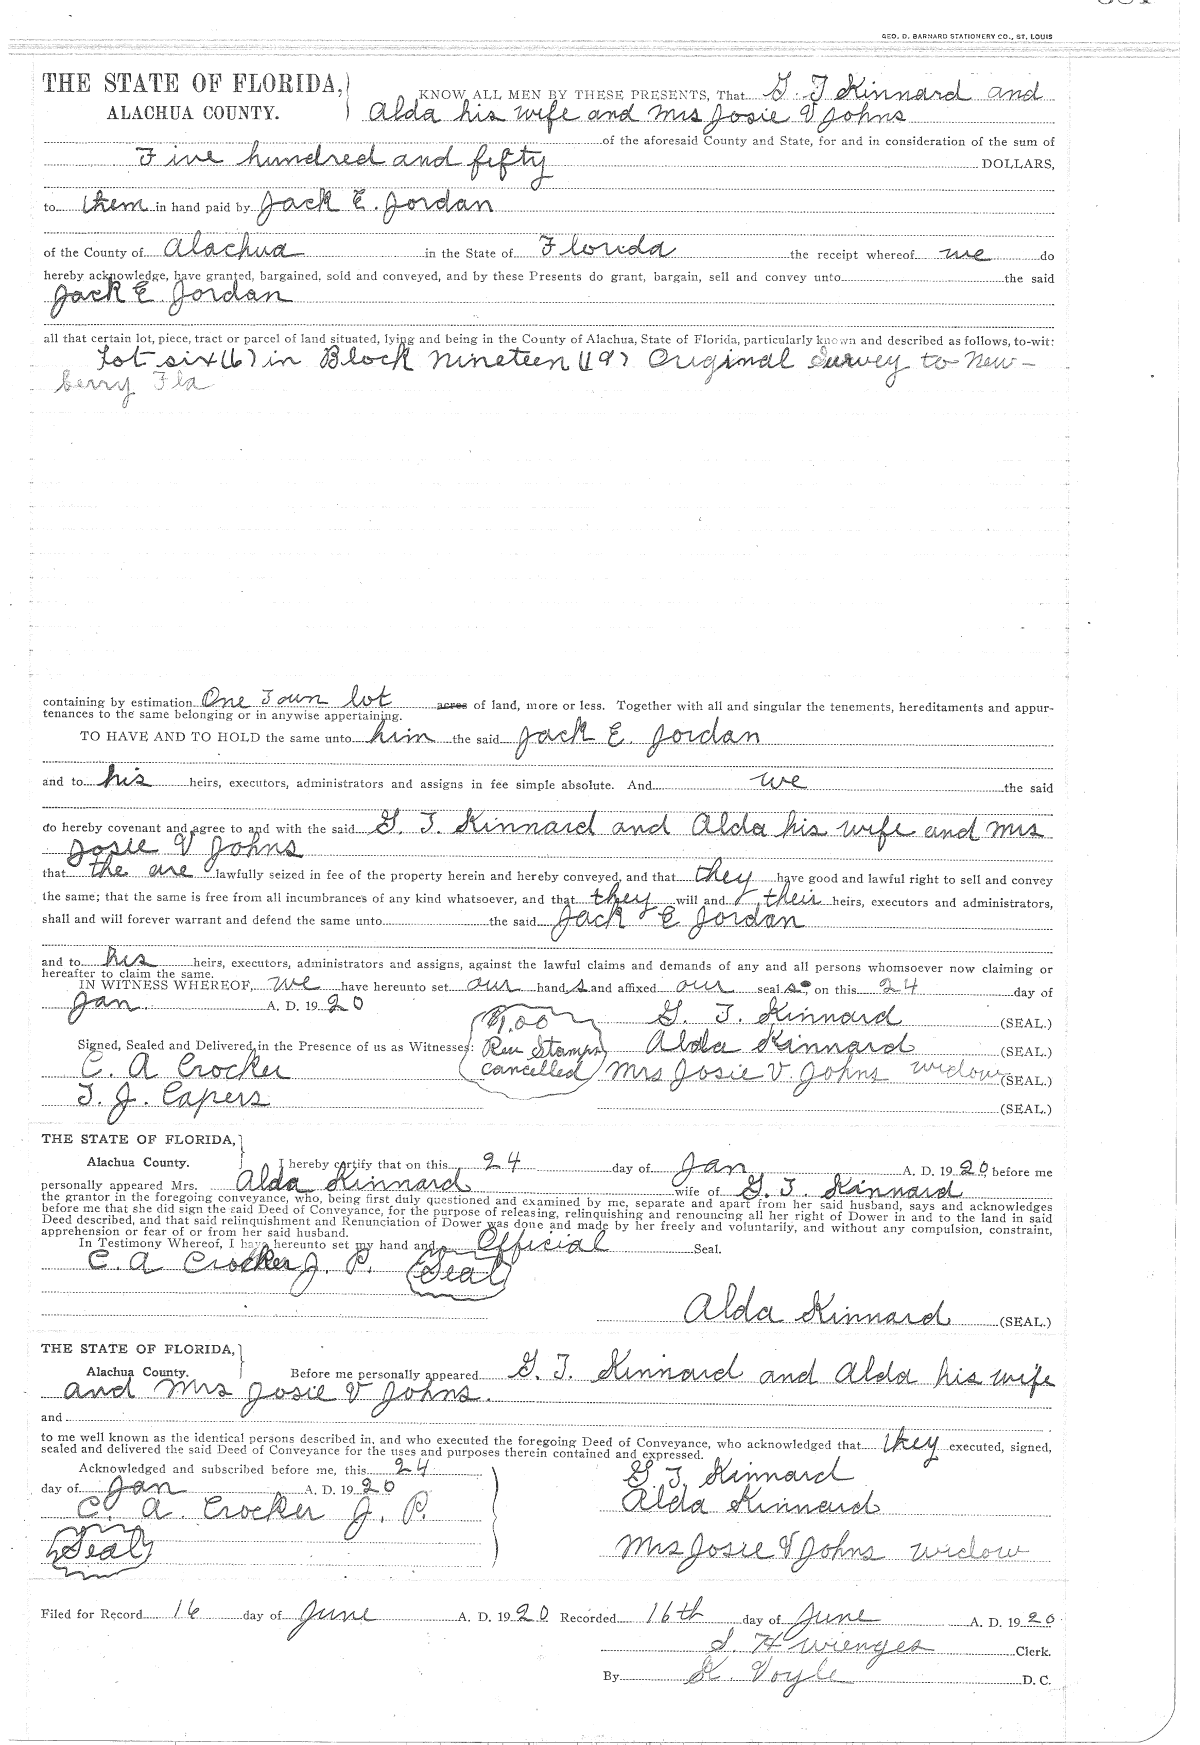 GEO. D. BARNARD STATIONERY CO., ST. LOUIS
THE STATE OF FLORIDA,
ALACHUA COUNTY.
KNOW ALL MEN BY THESE PRESENTS, That G. T. Kinnard and
Alda his wife and Mrs Josie V Johns
of the aforesaid County and State, for and in consideration of the sum of
Five hundred and fifty DOLLARS,
to them in hand paid by Jack E. Jordan
of the County of Alachua in the State of Florida the receipt whereof we do
hereby acknowledge, have granted, bargained, sold and conveyed, and by these Presents do grant, bargain, sell and convey unto the said
Jack E. Jordan
all that certain lot, piece, tract or parcel of land situated, lying and being in the County of Alachua, State of Florida, particularly known and described as follows, to-wit:
Lot six (6) in Block Nineteen (19) Original Survey to New-
berry Fla
containing by estimation One Town lot acres of land, more or less. Together with all and singular the tenements, hereditaments and appur-
tenances to the same belonging or in anywise appertaining.
TO HAVE AND TO HOLD the same unto him the said Jack E. Jordan
and to his heirs, executors, administrators and assigns in fee simple absolute. And we the said
do hereby covenant and agree to and with the said G. T. Kinnard and Alda his wife and Mrs
Josie V Johns
that the are lawfully seized in fee of the property herein and hereby conveyed, and that they have good and lawful right to sell and convey
the same; that the same is free from all incumbrances of any kind whatsoever, and that they will and their heirs, executors and administrators,
shall and will forever warrant and defend the same unto the said Jack E Jordan
and to his heirs, executors, administrators and assigns, against the lawful claims and demands of any and all persons whomsoever now claiming or
hereafter to claim the same.
IN WITNESS WHEREOF, we have hereunto set our hand s and affixed our seal s, on this 24 day of
Jan. A. D. 1920
G. T. Kinnard (SEAL.)
$1.00
Signed, Sealed and Delivered in the Presence of us as Witnesses: Rev Stamps Alda Kinnard (SEAL.)
C. A Crocker cancelled Mrs Josie V. Johns widow (SEAL.)
T. J. Capers (SEAL.)
THE STATE OF FLORIDA,
Alachua County. I hereby certify that on this 24 day of Jan A. D. 1920, before me
personally appeared Mrs. Alda Kinnard wife of G. T. Kinnard
the grantor in the foregoing conveyance, who, being first duly questioned and examined by me, separate and apart from her said husband, says and acknowledges
before me that she did sign the said Deed of Conveyance, for the purpose of releasing, relinquishing and renouncing all her right of Dower in and to the land in said
Deed described, and that said relinquishment and Renunciation of Dower was done and made by her freely and voluntarily, and without any compulsion, constraint,
apprehension or fear of or from her said husband.
In Testimony Whereof, I have hereunto set my hand and Official Seal.
C. A Crocker J. P. (Seal)
Alda Kinnard (SEAL.)
THE STATE OF FLORIDA,
Alachua County. Before me personally appeared G. T. Kinnard and Alda his wife
and Mrs Josie V Johns.
and
to me well known as the identical persons described in, and who executed the foregoing Deed of Conveyance, who acknowledged that they executed, signed,
sealed and delivered the said Deed of Conveyance for the uses and purposes therein contained and expressed.
Acknowledged and subscribed before me, this 24 G T. Kinnard
day of Jan A. D. 1920 Alda Kinnard
C. A. Crocker J. P.
(Seal) Mrs Josie V Johns widow
Filed for Record 16 day of June A. D. 1920 Recorded 16th day of June A. D. 1920
S. H Wienges Clerk.
By K. Voyle D. C.